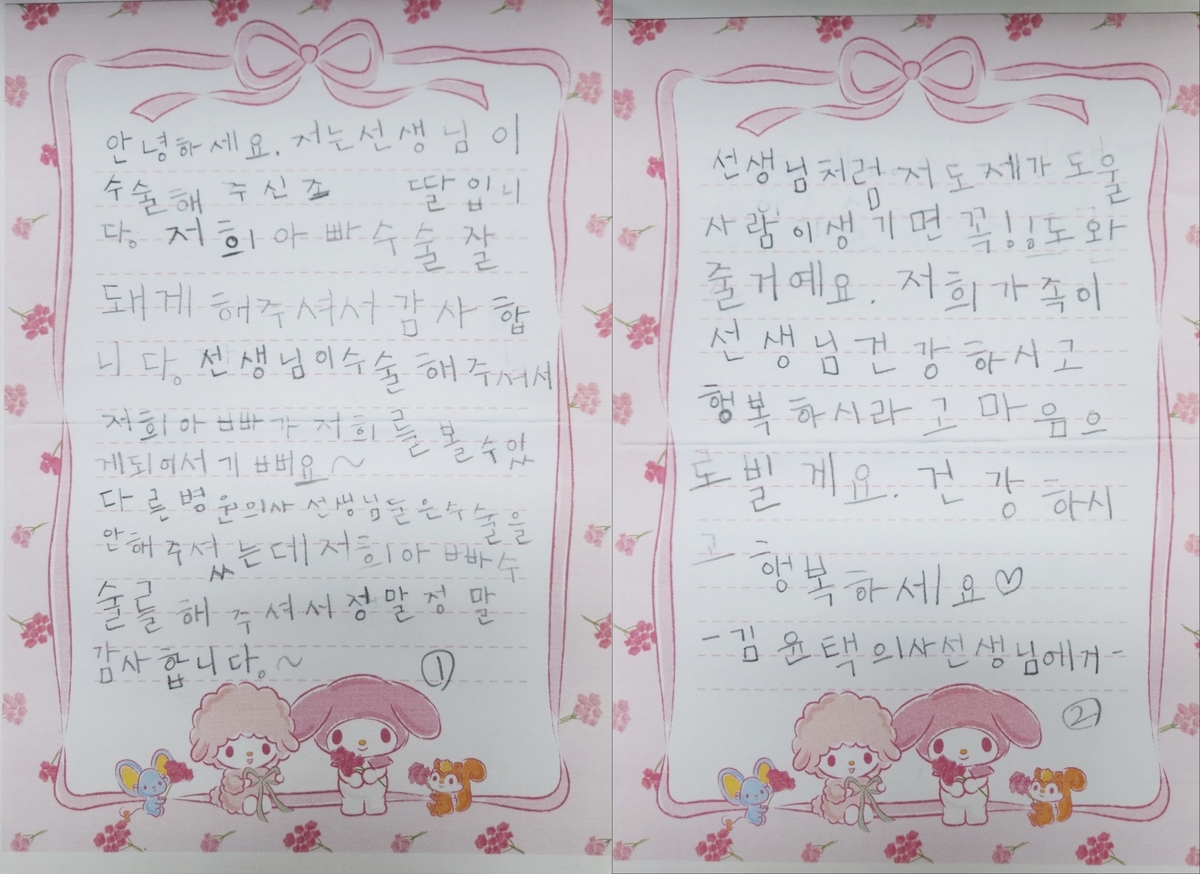 안녕하세요. 저는선생님이
수술해 주신조 딸입니
다. 저희아빠수술잘
돼게 해주셔서감사합
니다. 선생님이수술해주셔서
저희아빠가 저희를볼수있
게되어서기뻐요~
다른병원의사선생님들은수술을
안해주셨는데저희아빠수
술를해주셔서정말정말
감사합니다.~ ①
선생님처럼저도제가도울
사람이생기면꼭!!도와
줄거예요. 저희가족이
선생님건강하시고
행복하시라고마음으
로빌게요. 건강하시
고행복하세요♡
-김윤택의사선생님에게-
②